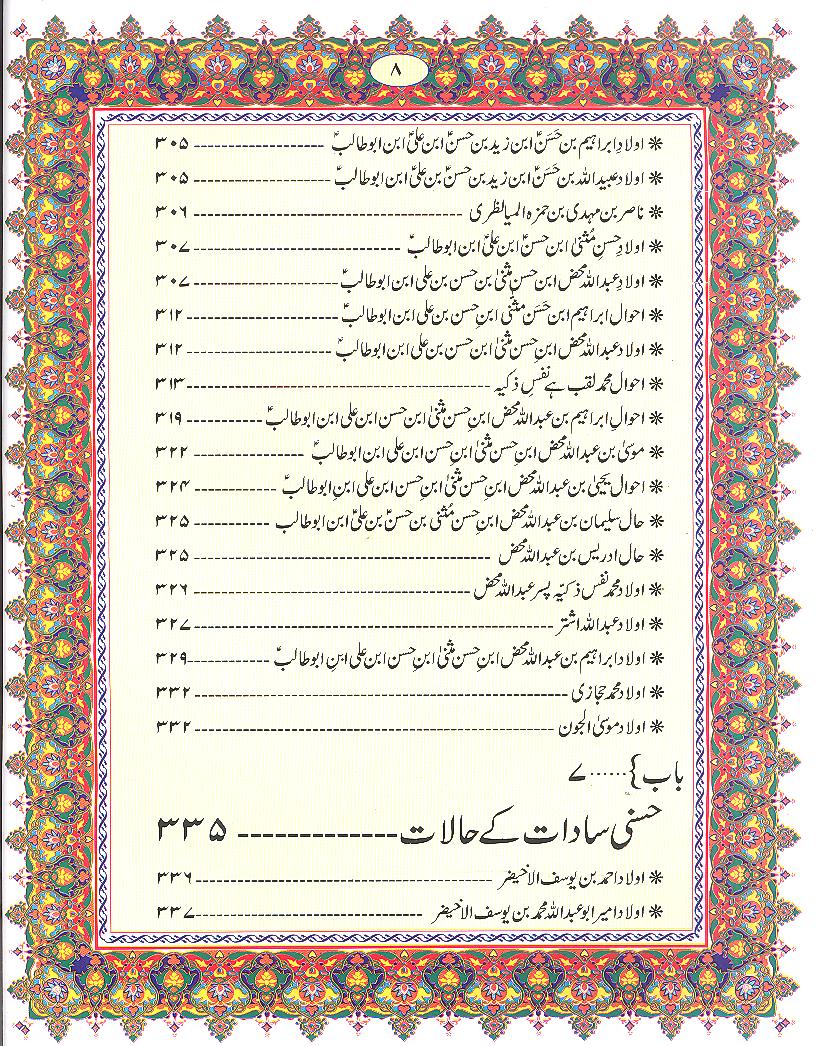 ۸
✳ اولادِ ابراہیم بن حَسَنؑ ابن زید بن حسنؑ ابن علیؑ ابن ابو طالبؑ ------------------- ۳۰۵
✳ اولاد عبیداللہ بن حَسَنؑ ابن زید بن حسنؑ بن علیؑ ابن ابو طالبؑ ------------------- ۳۰۵
✳ ناصر بن مہدی بن حمزہ المیالظری ------------------------------------- ۳۰۶
✳ اولادِ حسنِ مُثنیٰ ابن حسنؑ ابن علیؑ ابن ابو طالبؑ ----------------------------- ۳۰۷
✳ اولادِ عبداللہ محض ابن حسنِ مثنیٰ بن حسن بن علی ابن ابو طالبؑ -------------------- ۳۰۷
✳ احوال ابراہیم ابن حَسَن مثنّٰی ابنِ حسن بن علی ابن ابو طالبؑ --------------------- ۳۱۲
✳ اولاد عبداللہ محض ابنِ حسنِ مثنیٰ ابن حسن بن علی ابن ابو طالبؑ -------------------- ۳۱۲
✳ احوال محمد لقب ہے نفسِ ذکیہ ------------------------------------------ ۳۱۳
✳ احوالِ ابراہیم بن عبداللہ محض ابنِ حسن مثنیٰ ابن حسن ابن علی ابن ابو طالبؑ ----------- ۳۱۹
✳ موسیٰ بن عبداللہ محض ابنِ حسن مثنیٰ ابنِ حسن ابن علی ابن ابو طالبؑ ---------------- ۳۲۲
✳ احوال یحییٰ بن عبداللہ محض ابنِ حسنِ مثنیٰ ابنِ حسن ابن علی ابنِ ابو طالبؑ ------------ ۳۲۴
✳ حال سلیمان بن عبداللہ محض ابنِ حسن مُثنی بن حسنؑ بن علیؑ ابن ابو طالب ------------ ۳۲۵
✳ حال ادریس بن عبداللہ محض ------------------------------------------ ۳۲۵
✳ اولاد محمد نفس ذکیّہ پسر عبداللہ محض --------------------------------------- ۳۲۶
✳ اولاد عبداللہ اشتر --------------------------------------------------- ۳۲۷
✳ اولاد ابراہیم بن عبداللہ محض ابنِ حسنِ مثنیٰ ابنِ حسن ابن علی ابنِ ابو طالبؑ ------------ ۳۲۹
✳ اولاد محمد حجازی ----------------------------------------------------- ۳۳۲
✳ اولاد موسیٰ الجون --------------------------------------------------- ۳۳۲
باب }...... ۷
حسنی سادات کے حالات ------------- ۳۳۵
✳ اولاد احمد بن یوسف الاخیضر ------------------------------------------ ۳۳۶
✳ اولاد امیر ابو عبداللہ محمد بن یوسف الاخیضر -------------------------------- ۳۳۷